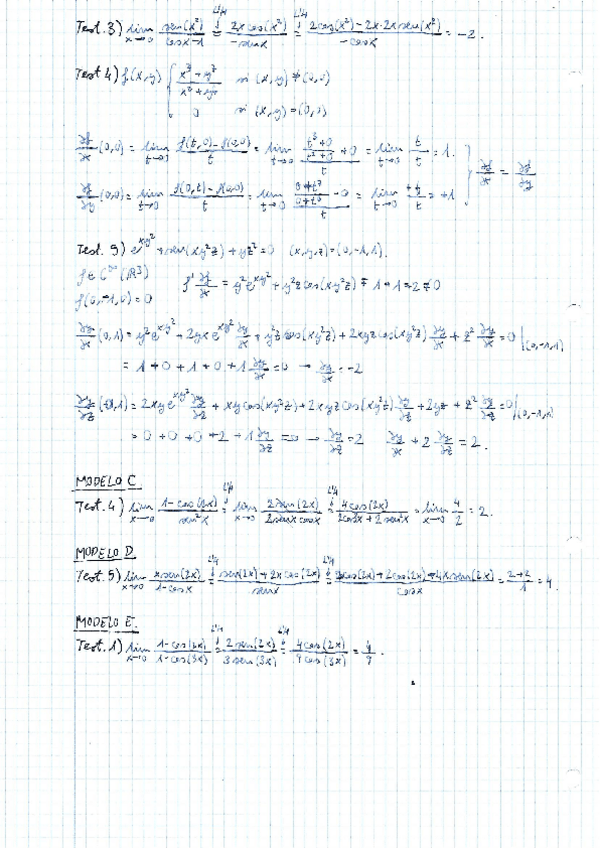 Test. 3) lim x→0 sen(x²)/(cosx-1) =(L'H) 2xcos(x²)/(-senx) =(L'H) (2cos(x²)-2x·2xsen(x²))/(-cosx) = -2.
Test 4) f(x,y) { (x³+y³)/(x²+y²) si (x,y)≠(0,0)
0 si (x,y)=(0,0)
∂f/∂x (0,0) = lim t→0 (f(t,0)-f(0,0))/t = lim t→0 ((t³+0)/(t²+0)+0)/t = lim t→0 t/t = 1. } ∂f/∂x = ∂f/∂y
∂f/∂y (0,0) = lim t→0 (f(0,t)-f(0,0))/t = lim t→0 -0/t = lim t→0 +t/t = +1
Test. 5) e^(xy²) + sen(xy²z) + yz² = 0 (x,y,z)=(0,-1,1).
f∈C^∞(ℝ³)
f(0,-1,0)=0
∂f/∂x = y²e^(xy²) + y²z cos(xy²z) = 1+1=2≠0
∂y/∂x (0,1) = y²e^(xy²) + 2yx e^(xy²) ∂y/∂x + y²z cos(xy²z) + 2xyz cos(xy²z) ∂y/∂x + z² ∂y/∂x = 0 |(0,-1,1)
= 1+0+1+0+1 ∂y/∂x = 0 → ∂y/∂x = -2
∂y/∂z (0,1) = 2xye^(xy²) ∂y/∂z + xy cos(xy²z) + 2xyz cos(xy²z) ∂y/∂z + 2yz + z² ∂y/∂z = 0 |(0,-1,1)
= 0+0+0+2+1 ∂y/∂z = 0 → ∂y/∂z = 2 ∂y/∂x + 2 ∂y/∂z = 2.
MODELO C.
Test. 4) lim x→0 (1-cos(2x))/sen²x =(L'H) lim x→0 2sen(2x)/(2senx cosx) =(L'H) 4cos(2x)/(2cos²x+2sen²x) = lim x→0 4/2 = 2.
MODELO D.
Test. 5) lim x→0 xsen(2x)/(1-cosx) =(L'H) (sen(2x)+2xcos(2x))/senx =(L'H) (2cos(2x)+2cos(2x)-4xsen(2x))/cosx = (2+2)/1 = 4.
MODELO E.
Test. 1) lim x→0 (1-cos(2x))/(1-cos(3x)) =(L'H) 2sen(2x)/3sen(3x) =(L'H) 4cos(2x)/9cos(3x) = 4/9.